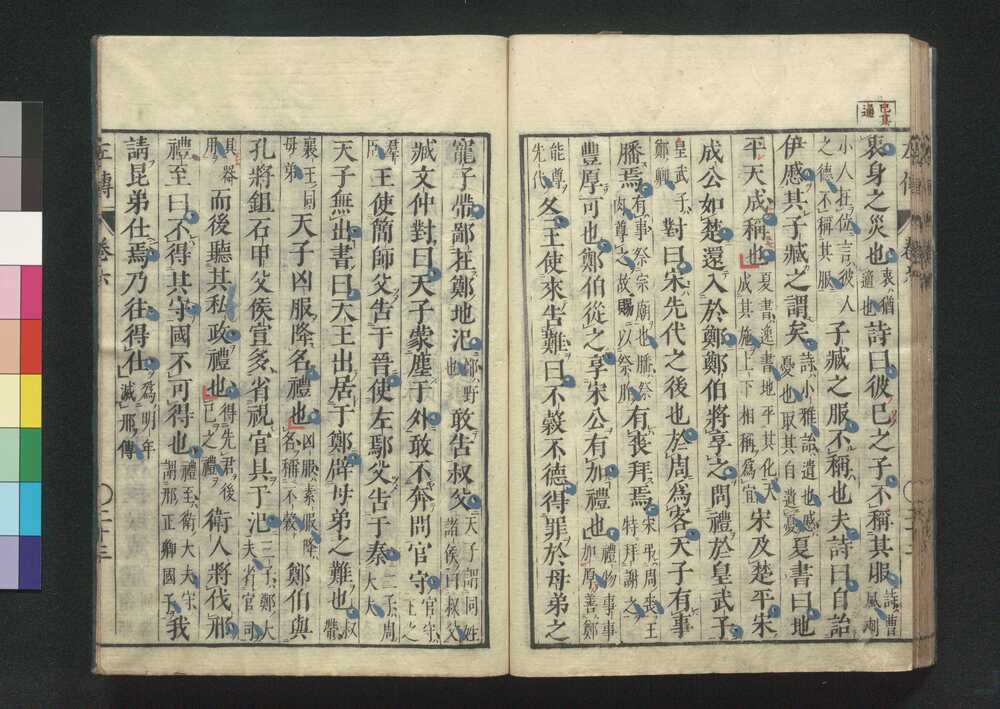 衷身之災也衷猶適也詩曰彼已之子不稱其服詩曹風刺
小人在位言彼人之德不稱其服子臧之服不稱也夫詩曰自詒
伊慼其子臧之謂矣詩小雅詒遺也慼憂也取其自遺憂夏書曰地
平天成稱也夏書逸書地平其化天成其施上下相稱爲宜宋及楚平宋
成公如楚還入於鄭鄭伯將享之問禮於皇武子
皇武子鄭卿對曰宋先代之後也於周爲客天子有事
膰焉有事祭宗廟也膰祭肉尊之故賜以祭胙有喪拜焉宋弔周喪王特拜謝之
豐厚可也鄭伯從之享宋公有加禮也禮物事事加厚善鄭
能尊先代冬王使來告難曰不穀不德得罪於母弟之
寵子帶鄙在鄭地氾鄙野也敢告叔父天子謂同姓諸侯曰叔父
臧文仲對曰天子蒙塵于外敢不奔問官守官守王之
羣臣王使簡師父告于晉使左鄢父告于秦二子周大夫
天子無出書曰天王出居于鄭辟母弟之難也叔帶
襄王同母弟天子凶服降名禮也凶服素服降名稱不穀鄭伯與
孔將鉏石甲父侯宣多省視官具于氾三子鄭大夫省官司
具器用而後聽其私政禮也得先君後己之禮衛人將伐邢
禮至曰不得其守國不可得也禮至衛大夫守謂邢正卿國子我
請昆弟仕焉乃往得仕爲明年滅邢傳
左傳 卷六 二十三